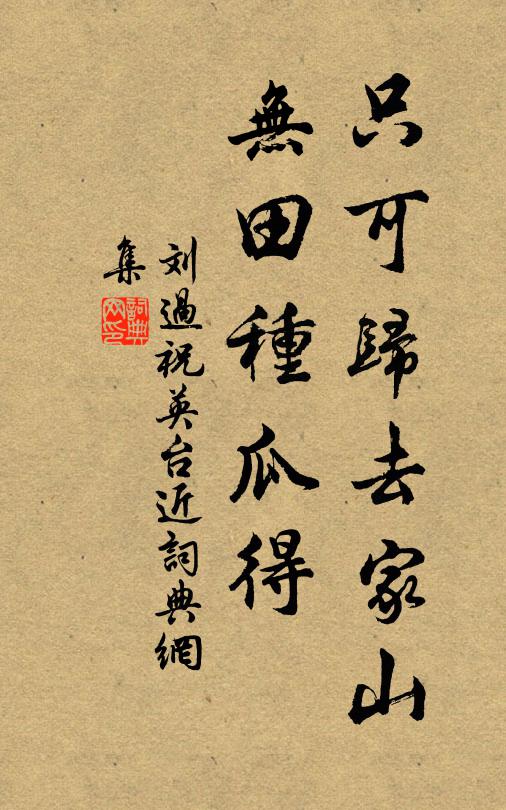 只可歸去家山
無田種瓜得
刘過祝英台近詞典網
集
詞典
网印